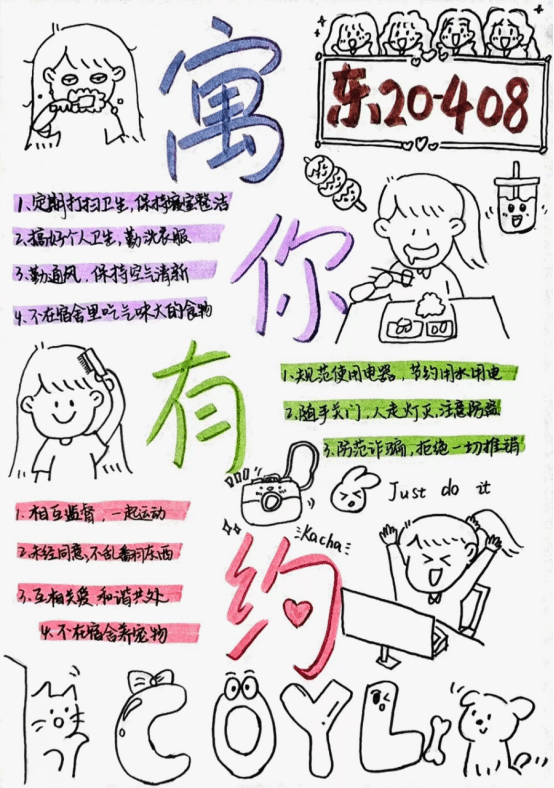 寓
东20-408
1.定期打扫卫生,保持寝室整洁
2.搞好个人卫生,勤洗衣服
3.勤通风,保持空气清新
4.不在宿舍里吃气味大的食物
你
有
1.规范使用电器,节约用水用电
2.随手关门,人走灯灭,注意防盗
3.防范诈骗,拒绝一切推销
Just do it
Kacha
1.相互监督,一起运动
2.未经同意,不乱翻别人东西
3.互相关爱,和谐共处
4.不在宿舍养宠物
约
COYL